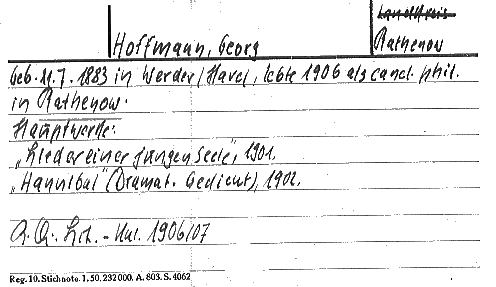 Landkreis
Hoffmann, Georg
Rathenow
geb. 11.7.1883 in Werder/Havel, lebte 1906 als cand. phil.
in Rathenow.
Hauptwerke:
„Lieder einer jungen Seele", 1901.
„Hannibal" (Dramat. Gedicht), 1902.
Lit. - Kal. 1906/07
Reg. 10. Stichnote. 1. 50. 232000. A. 803. S. 4062